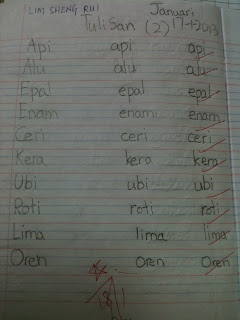 LIM SHENG RUI Januari
Tulisan (2) 17-1-2013
Api api api
Alu alu alu
Epal epal epal
Enam enam enam
Ceri ceri ceri
Kera kera kera
Ubi ubi ubi
Roti roti roti
Lima lima lima
Oren Oren Oren